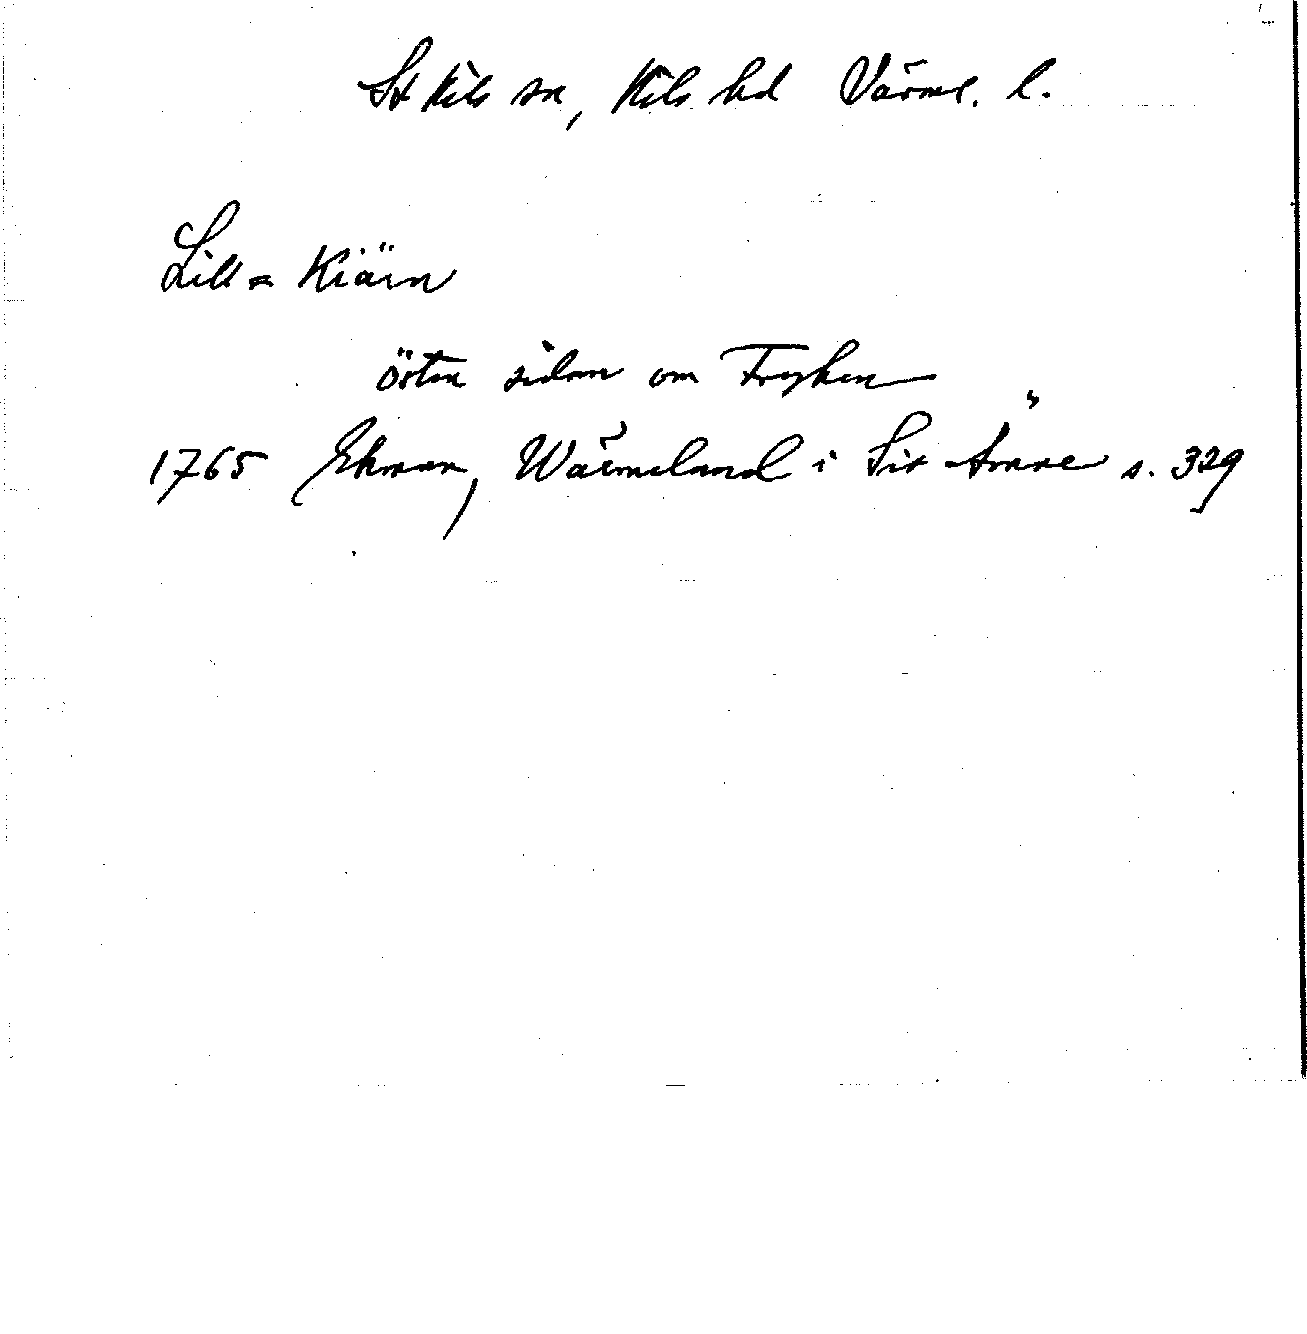 St Kils sn, Kils hd Värml. l.
Lilla Kiärn
östra sidan om Fryken
1765 Ekman, Wärmeland i Sit Ämne s. 329